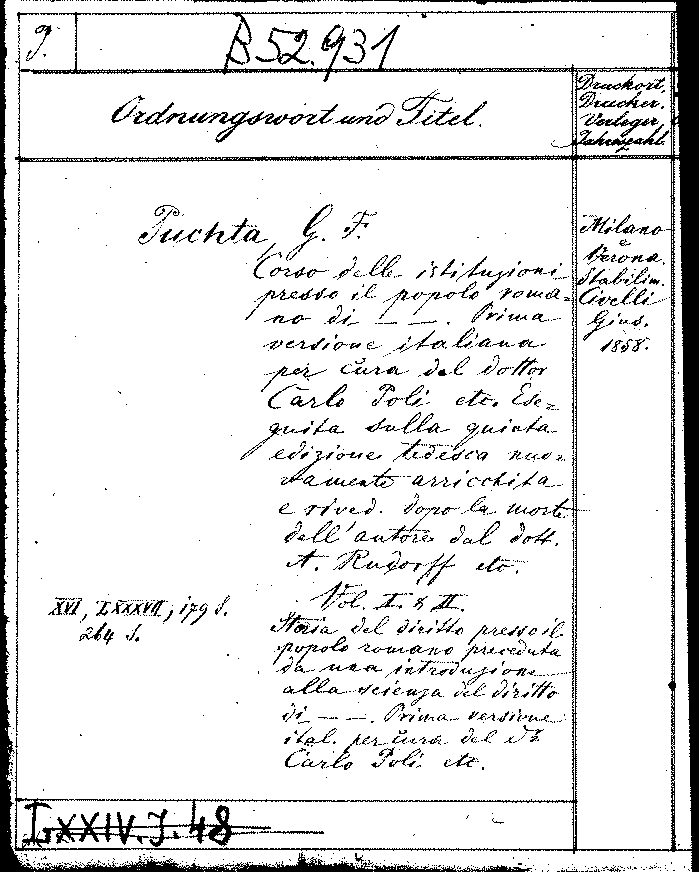 J.
B 52.931
Ordnungswort und Titel.
Druckort,
Drucker.
Verleger,
Jahrzahl.
Puchta, G. F.
Corso delle istituzioni
presso il popolo roma=
no di — —. Prima
versione italiana
per cura del dottor
Carlo Poli etc. Ese=
guita sulla quinta
edizione tedesca nuo=
vamente arricchita
e rived. dopo la morte
dell'autore dal dott.
A. Rudorff etc.
Vol. I. & II.
Storia del diritto presso il
popolo romano preceduta
da una introduzione
alla scienza del diritto
di — —. Prima versione
ital. per cura del Dr
Carlo Poli etc.
Milano
e
Verona.
Stabilim.
Civelli
Gius.
1858.
XVI, LXXXVII, 179 S.
264 S.
LXXIV. J. 48